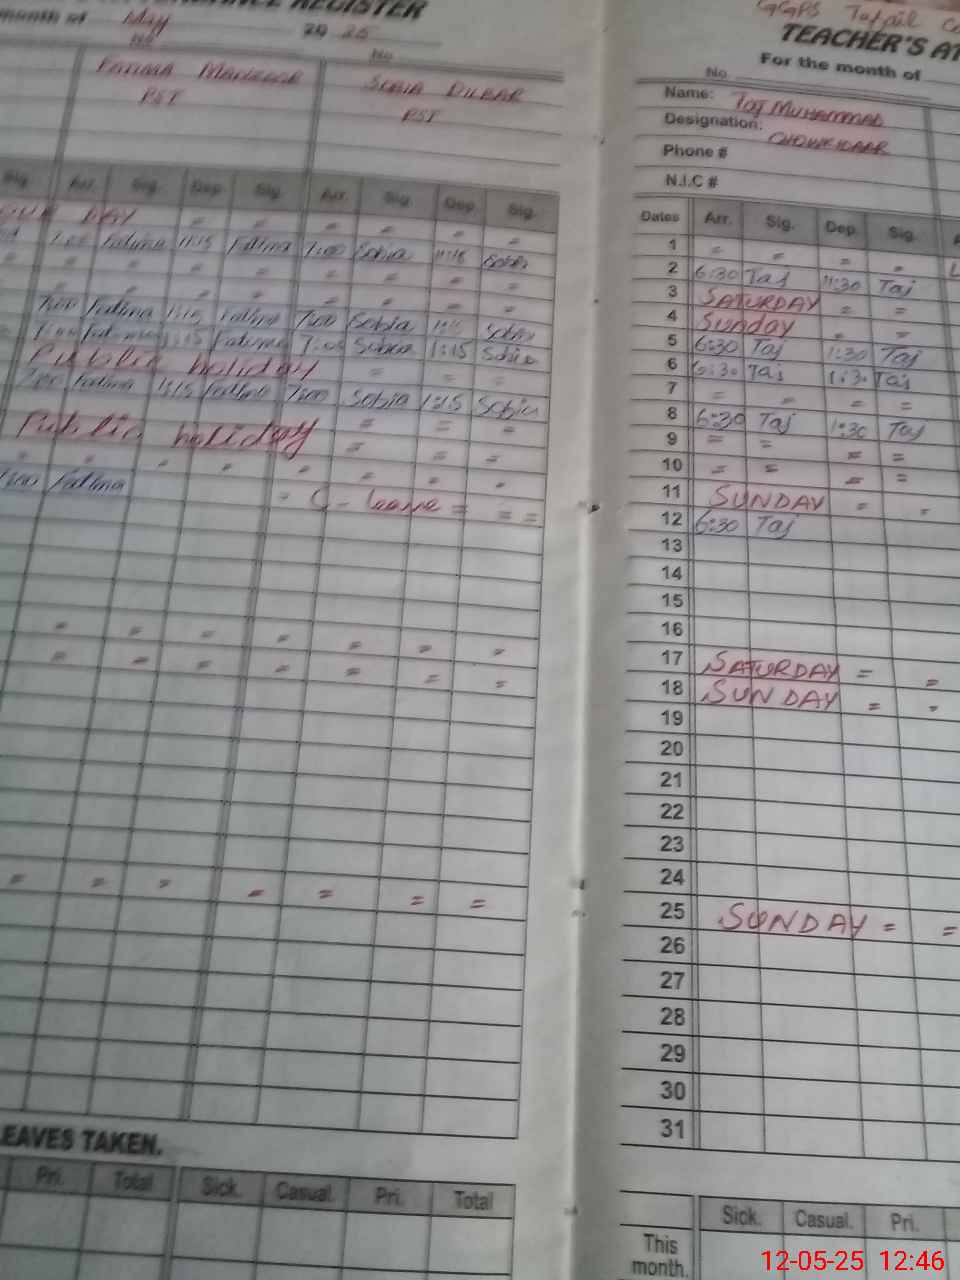 REGISTER
month of May 20 25
No. No.
FATIMA SOBIA DILBAR
PST PST
Sig. Arr. Sig. Dep. Sig. Arr. Sig. Dep. Sig.
DAY = = = = = =
7:00 Fatima 11:15 Fatima 7:00 Sobia 11:15 Sobia
= = = = = = = = =
= = = = = = = =
7:00 Fatima 1:15 Fatima 7:00 Sobia 1:15 Sobia
7:00 Fatima 1:15 Fatima 7:00 Sobia 1:15 Sobia
Public holiday = = =
7:00 Fatima 1:15 Fatima 7:00 Sobia 1:15 Sobia
Public holiday = = =
= = =
= = = = = = = =
7:00 Fatima = C - leave = = =
= = = = = = =
= = = = = = =
= = = = = = =
LEAVES TAKEN.
Pri. Total Sick. Casual. Pri. Total
GGPS
TEACHER'S AT
For the month of
No.
Name: TAJ MUHAMMAD
Designation: CHOWKIDAAR
Phone #
N.I.C #
Dates Arr. Sig. Dep. Sig.
1 = = = =
2 6:30 Taj 11:30 Taj
3 SATURDAY = =
4 Sunday = =
5 6:30 Taj 1:30 Taj
6 6:30 Taj 1:30 Taj
7 = = = =
8 6:30 Taj 1:30 Taj
9 = = = =
10 = = = =
11 SUNDAY = =
12 6:30 Taj
13
14
15
16
17 SATURDAY = =
18 SUNDAY = =
19
20
21
22
23
24
25 SUNDAY = =
26
27
28
29
30
31
Sick. Casual. Pri.
This
month.
12-05-25 12:46